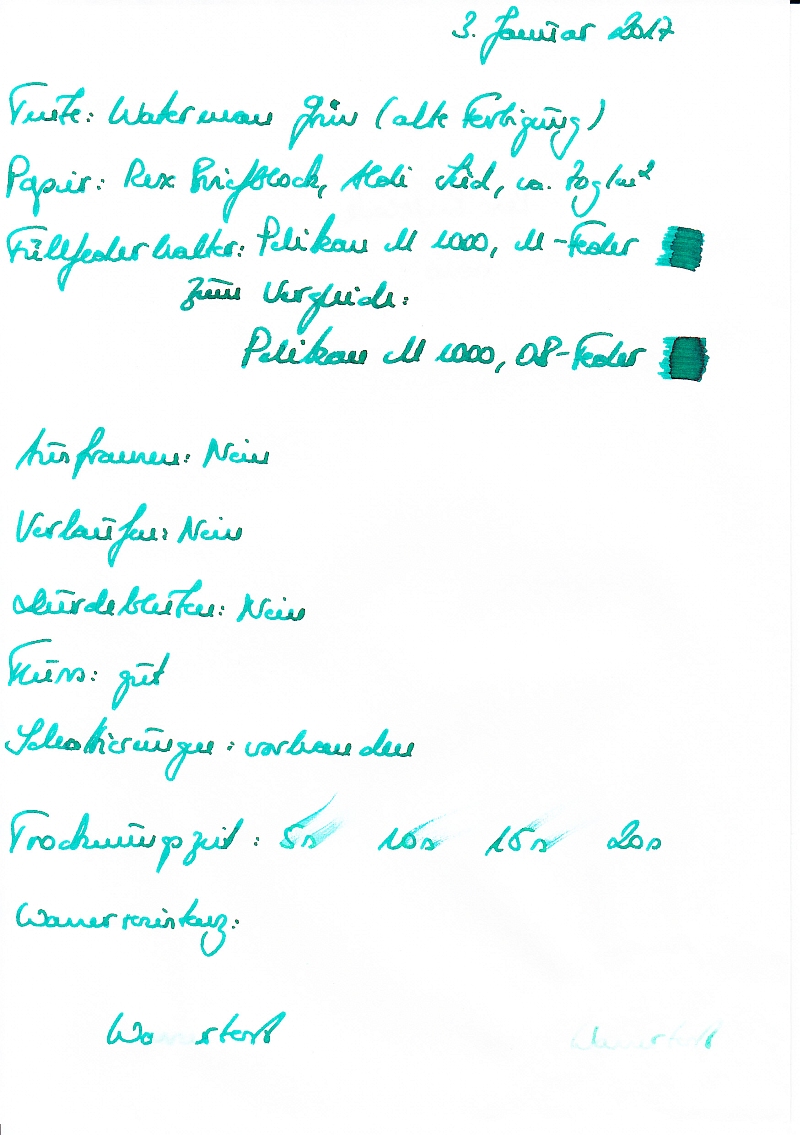 3. Januar 2017
Tinte: Waterman Grün (alte Fertigung)
Papier: Rex Briefblock, Aldi Süd, ca. 70g/m²
Füllfederhalter: Pelikan M 1000, M-Feder
zum Vergleich:
Pelikan M 1000, OB-Feder
Ausfransen: Nein
Verlaufen: Nein
Durchbluten: Nein
Fluss: gut
Schattierungen: vorhanden
Trocknungszeit: 5s 10s 15s 20s
Wasserresistenz:
Wassertest Wassertest